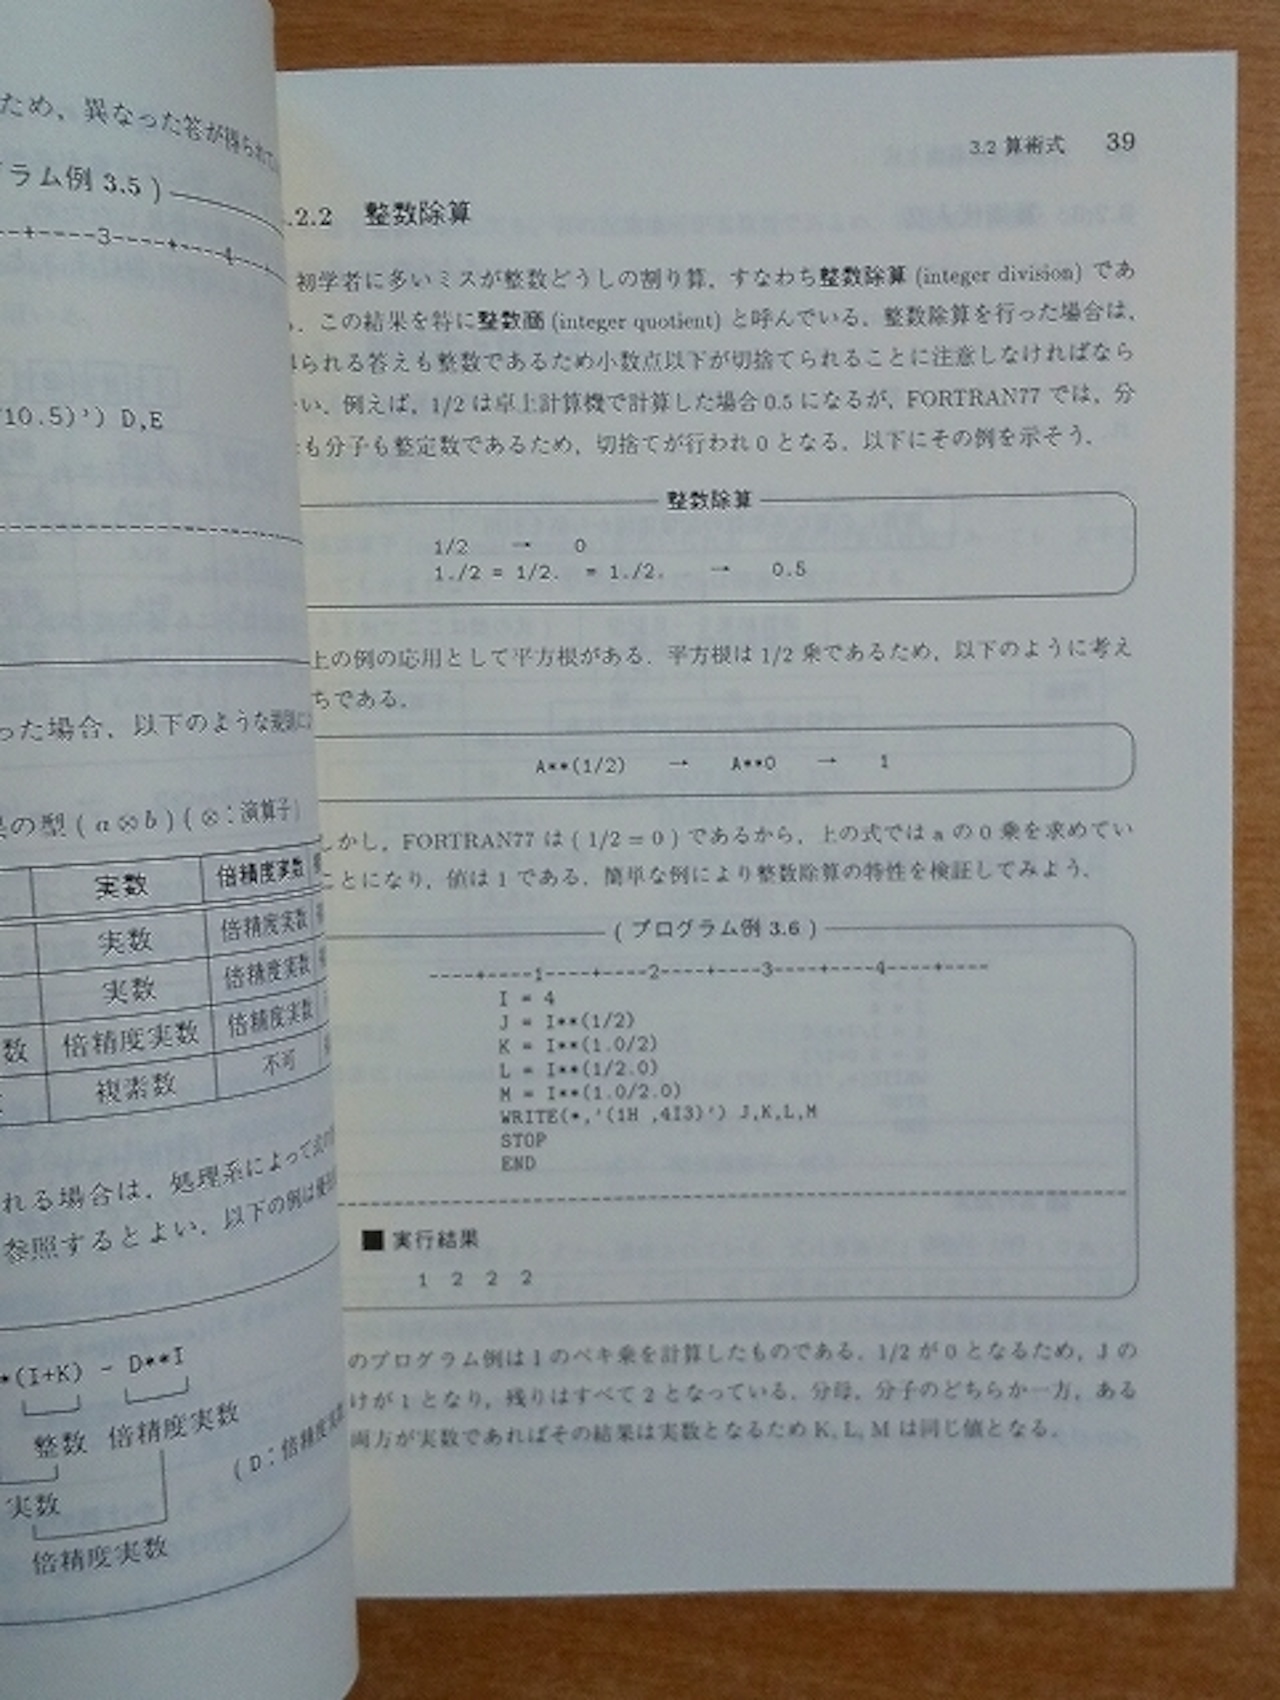 ため、異なった答が得られて
ラム例 3.5 )
--+----3----+----4----+
10.5)') D,E
った場合、以下のような規則に
の型 ( a⊗b ) ( ⊗ : 演算子 )
実数 倍精度実数
実数 倍精度実数
実数 倍精度実数
数 倍精度実数 倍精度実数
複素数 不可
れる場合は、処理系によって式の
参照するとよい。以下の例は優先
*(I+K) - D**I
整数 倍精度実数
( D : 倍精度実数
実数
倍精度実数
3.2 算術式 39
.2.2 整数除算
初学者に多いミスが整数どうしの割り算、すなわち整数除算 (integer division) であ
。この結果を特に整数商 (integer quotient) と呼んでいる。整数除算を行った場合は、
られる答えも整数であるため小数点以下が切捨てられることに注意しなければなら
い。例えば、1/2 は卓上計算機で計算した場合 0.5 になるが、FORTRAN77 では、分
も分子も整定数であるため、切捨てが行われ 0 となる。以下にその例を示そう。
整数除算
1/2 → 0
1./2 = 1/2. = 1./2. → 0.5
上の例の応用として平方根がある。平方根は 1/2 乗であるため、以下のように考え
ちである。
A**(1/2) → A**0 → 1
しかし、FORTRAN77 は ( 1/2 = 0 ) であるから、上の式では a の 0 乗を求めてい
ことになり、値は 1 である。簡単な例により整数除算の特性を検証してみよう。
( プログラム例 3.6 )
----+----1----+----2----+----3----+----4----+----
I = 4
J = I**(1/2)
K = I**(1.0/2)
L = I**(1/2.0)
M = I**(1.0/2.0)
WRITE(*,'(1H ,4I3)') J,K,L,M
STOP
END
■ 実行結果
1 2 2 2
のプログラム例は I のベキ乗を計算したものである。1/2 が 0 となるため、J の
けが 1 となり、残りはすべて 2 となっている。分母、分子のどちらか一方、ある
両方が実数であればその結果は実数となるため K, L, M は同じ値となる。